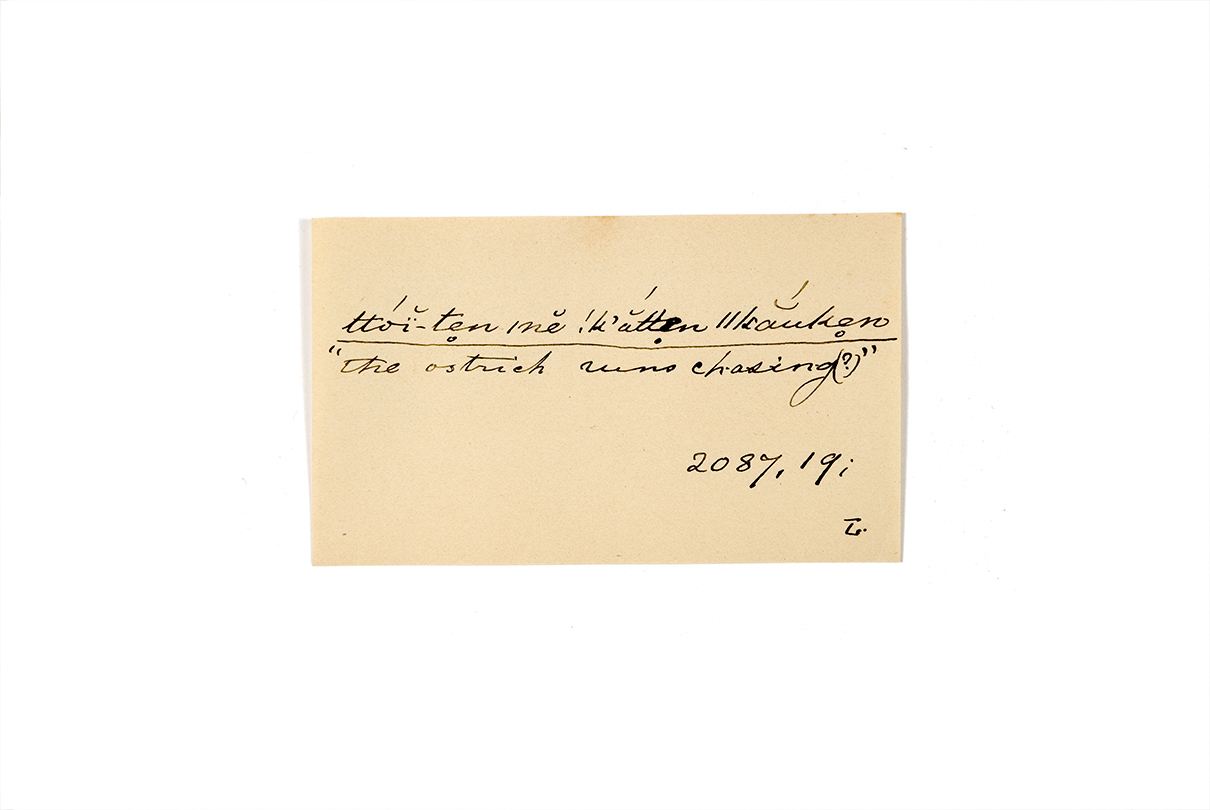 ttóï̆-ten̥ ıně !k'ắtten̥ ǁkắuken̥
"the ostrich runs chasing(?)"
2087, 19;
L.